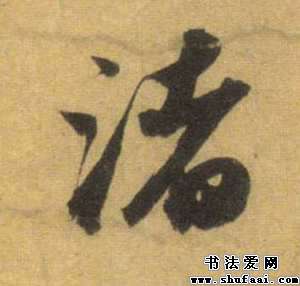 渚
书法爱网
www.shufaai.com